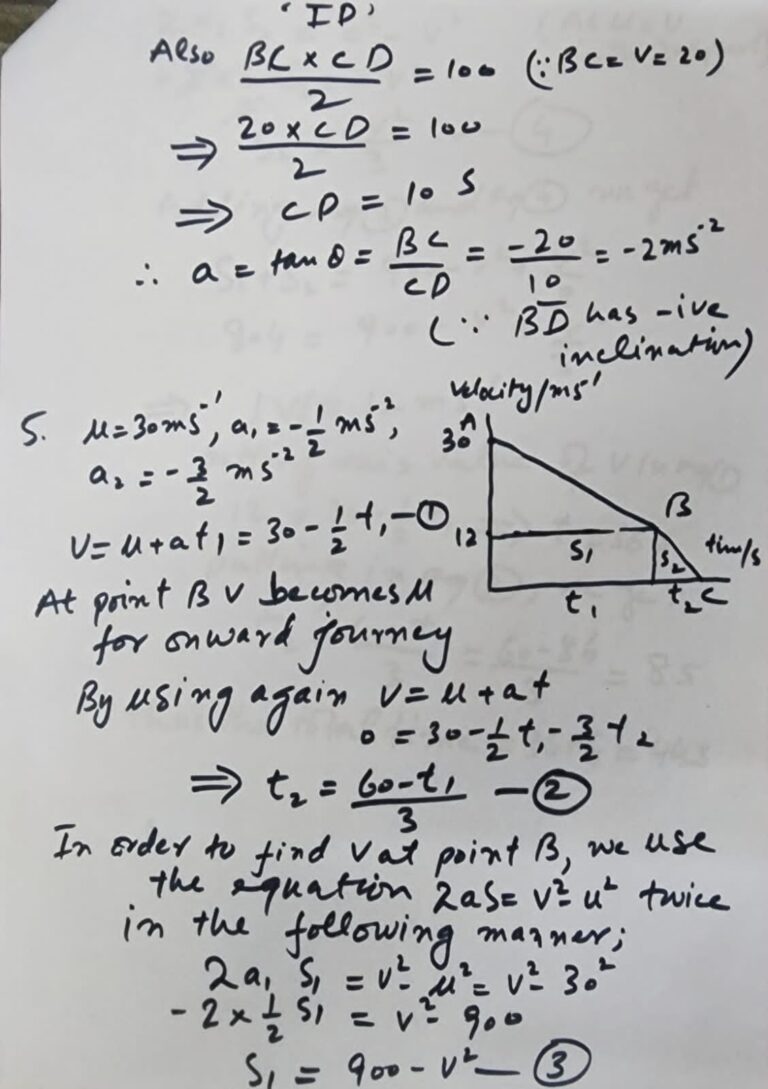 'ID'
Also BC × CD / 2 = 100 (∵ BC = V = 20)
⇒ 20 × CD / 2 = 100
⇒ CD = 10 S
∴ a = tan θ = BC / CD = -20 / 10 = -2 ms⁻²
(∵ BD has -ive
inclination)
Velocity/ms⁻¹
5. u = 30 ms⁻¹, a₁ = -1/2 ms⁻²,
a₂ = -3/2 ms⁻²
V = u + at₁ = 30 - 1/2 t₁ — ①
30 A
B
12
S₁
S₂
time/s
t₁
t₂ C
At point B V becomes u
for onward journey
By using again V = u + at
0 = 30 - 1/2 t₁ - 3/2 t₂
⇒ t₂ = 60 - t₁ / 3 — ②
In order to find V at point B, we use
the equation 2aS = V² - u² twice
in the following manner;
2a₁ S₁ = V² - u² = V² - 30²
- 2 × 1/2 S₁ = V² - 900
S₁ = 900 - V² — ③